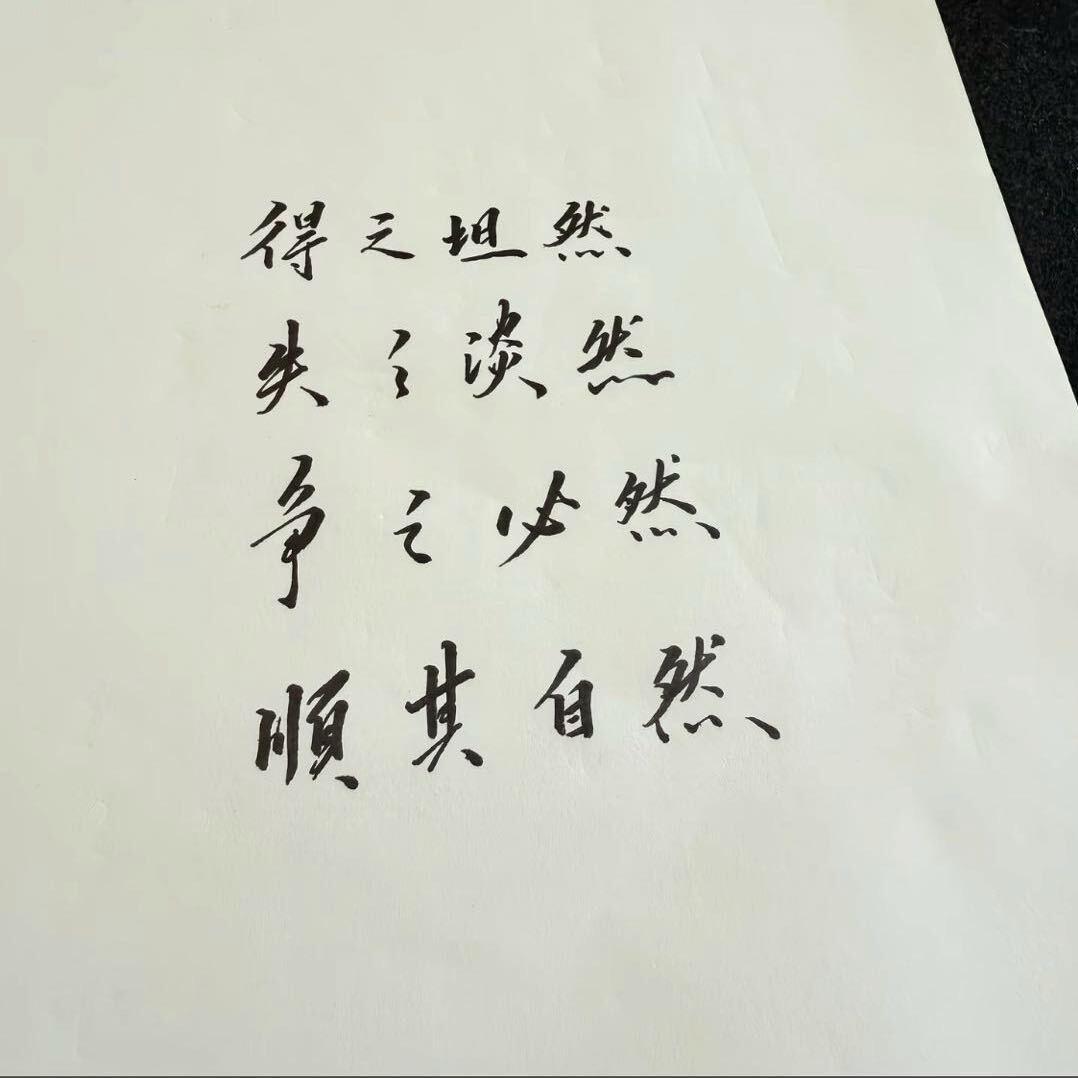 得之坦然
失之淡然
争之必然
順其自然